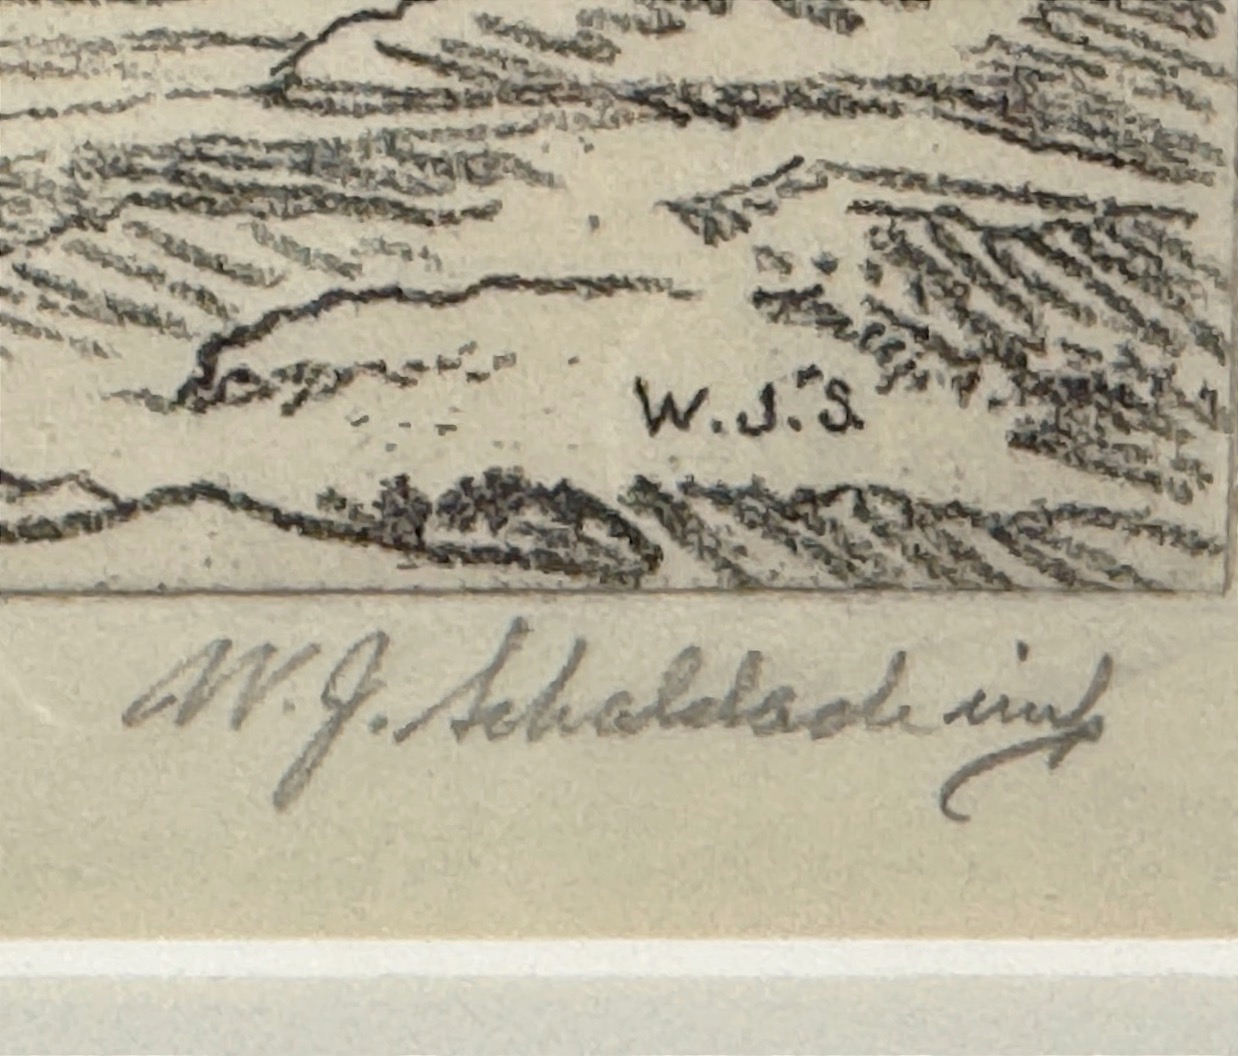 W.J.S.
W. J. Schaldach imp